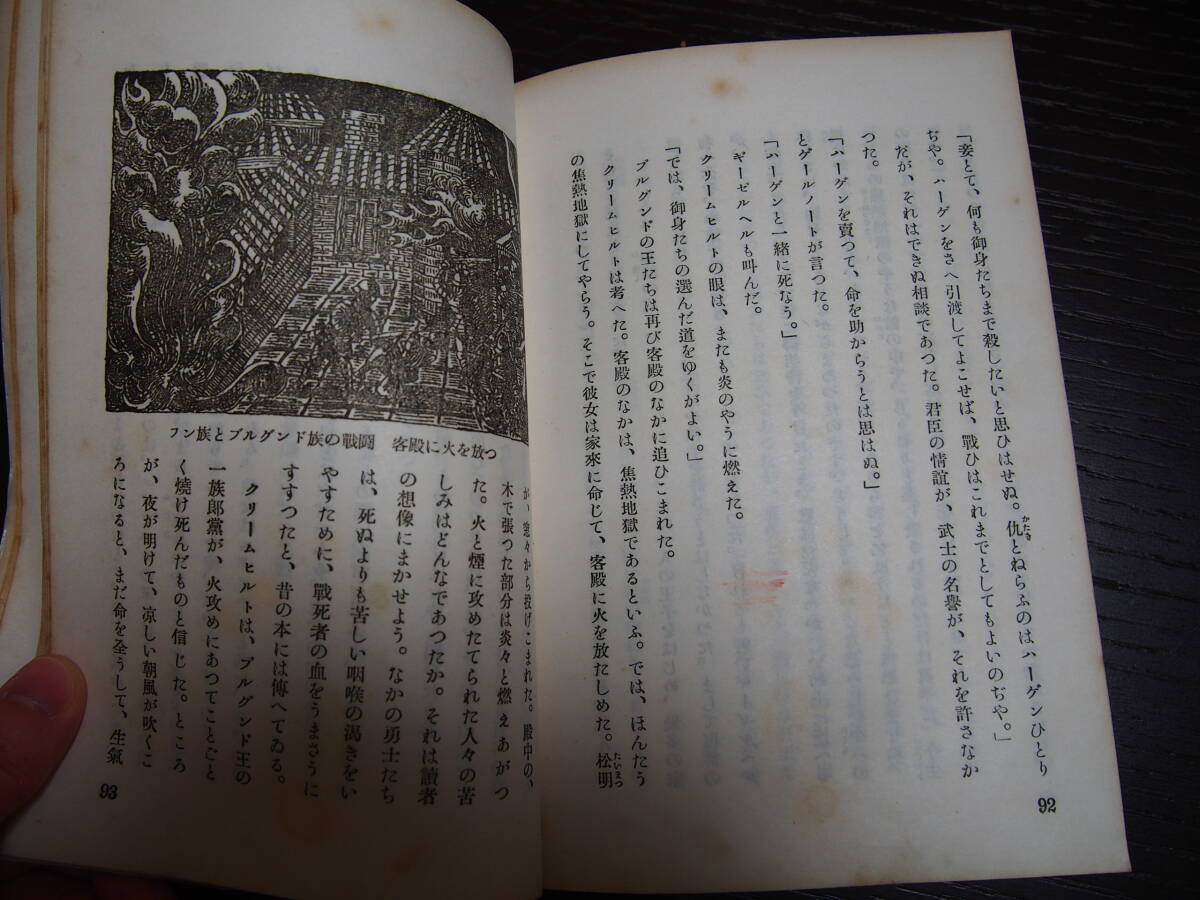 「妾とて、何も御身たちまで殺したいと思ひはせぬ。仇とねらふのはハーゲンひとり
ぢや。ハーゲンをさへ引渡してよこせば、戰ひはこれまでとしてもよいのぢや。」
だが、それはできぬ相談であつた。君臣の情誼が、武士の名譽が、それを許さなか
つた。
「ハーゲンを賣つて、命を助からうとは思はぬ。」
とゲールノートが言つた。
「ハーゲンと一緒に死なう。」
ギーゼルヘルも叫んだ。
クリームヒルトの眼は、またも炎のやうに燃えた。
「では、御身たちの選んだ道をゆくがよい。」
ブルグンドの王たちは再び客殿のなかに追ひこまれた。
クリームヒルトは考へた。客殿のなかは、焦熱地獄であるといふ。では、ほんたう
の焦熱地獄にしてやらう。そこで彼女は家來に命じて、客殿に火を放たしめた。松明
かたき
たいまつ
92
フン族とブルグンド族の戰鬪 客殿に火を放つ
が、窓々から投げこまれた。殿中の、
木で張つた部分は炎々と燃えあがつ
た。火と煙に攻めたてられた人々の苦
しみはどんなであつたか。それは讀者
の想像にまかせよう。なかの勇士たち
は、死ぬよりも苦しい咽喉の渇きをい
やすために、戰死者の血をうまさうに
すすつたと、昔の本には傳へてゐる。
クリームヒルトは、ブルグンド王の
一族郎黨が、火攻めにあつてことごと
く燒け死んだものと信じた。ところ
が、夜が明けて、凉しい朝風が吹くこ
ろになると、まだ命を全うして、生氣
93